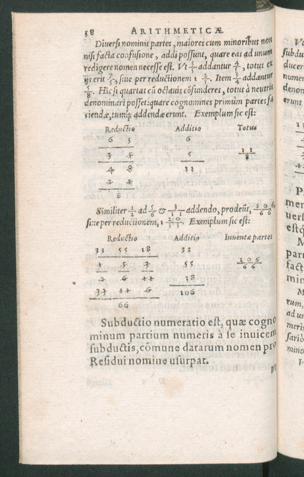 38 ARITHMETICÆ
Diversi nominis partes, maiores cum minoribus non
nisi facta confusione, addi possunt, quare eas ad unum
redigere nomen necesse est. Vt addantur totus ex
sive per reductionem 1 Item addantur
Hic si quartas cũ octavis cõfunderes, totus à neutris
denominari posset: quare cognomines primùm partes fa
ciendæ, tum addendæ erunt. Exemplum sic est:
Reductio Additio Totus
6 5 6
3 4 5 11
4 8 11 8
8
Similiter ad & addendo, prodeũt,
sive per reductionem, 1 Exemplum sic est:
Reductio Additio Inventæ partes
33 55 18 33
1 5 3 55 106
2 6 11 18 66
106
66
Subductio numeratio est, quæ cogno
minum partium numeris à se invicem
subductis, cõmune datarum nomen pro
Residui nomine usurpat.